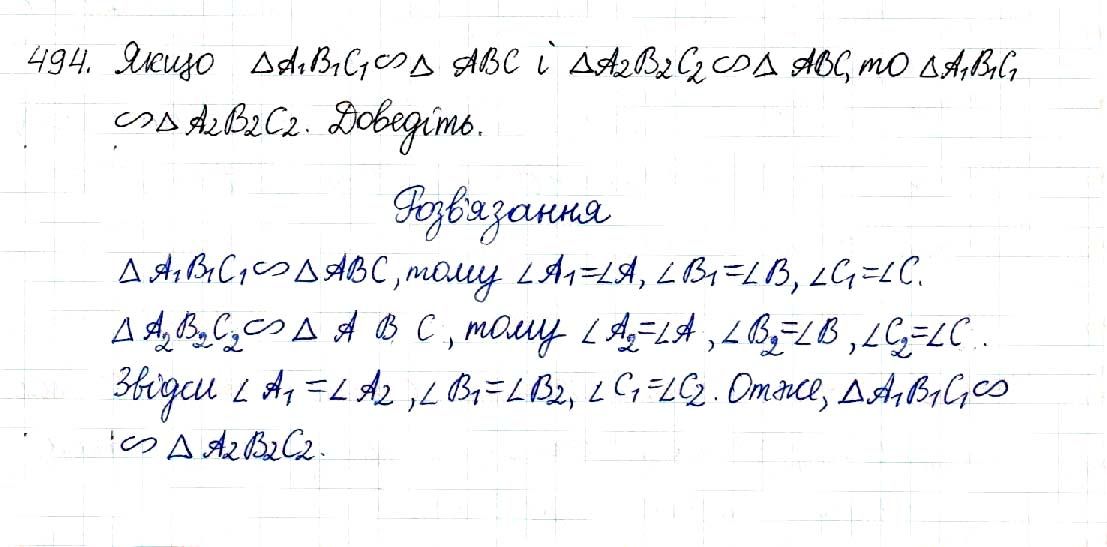 494. Якщо ΔA₁B₁C₁∽Δ ABC і ΔA₂B₂C₂∽Δ ABC, то ΔA₁B₁C₁
∽Δ A₂B₂C₂. Доведіть.
Розв'язання
Δ A₁B₁C₁∽ΔABC, тому ∠A₁=∠A, ∠B₁=∠B, ∠C₁=∠C.
Δ A₂B₂C₂∽Δ A B C, тому ∠A₂=∠A, ∠B₂=∠B, ∠C₂=∠C.
Звідси ∠A₁=∠A₂, ∠B₁=∠B₂, ∠C₁=∠C₂. Отже, ΔA₁B₁C₁∽
∽ΔA₂B₂C₂.